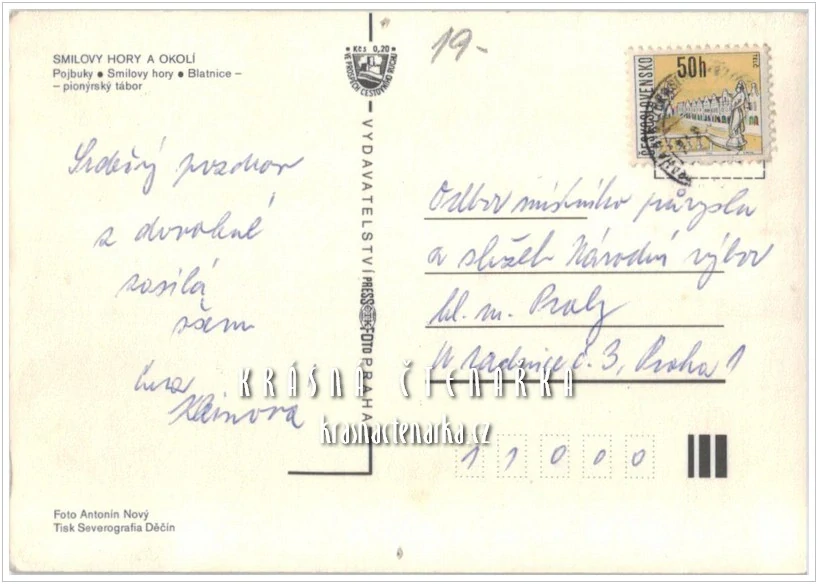 SMILOVY HORY A OKOLÍ
Pojbuky ● Smilovy hory ● Blatnice –
– pionýrský tábor
Kčs 0,20
VE PROSPĚCH CESTOVNÍHO RUCHU
19-
ČESKOSLOVENSKO
50h
TELČ
Srdečný pozdrav
z dovolené
zasílá
všem
Klainova
VYDAVATELSTVÍ PRESSFOTO PRAHA
Odbor místního průmyslu
a služeb Národní výbor
hl. m. Prahy
U radnice č. 3, Praha 1
11000
KRÁSNÁ ČTENÁRKA
krasnactenarka.cz
Foto Antonín Nový
Tisk Severografia Děčín